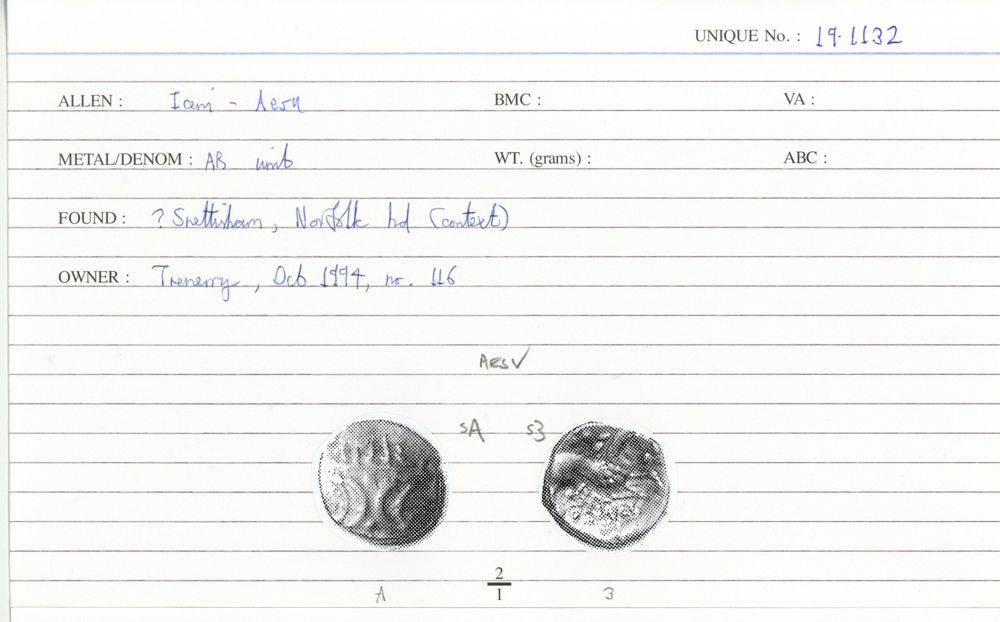 UNIQUE No. : 19.1132
ALLEN : Iceni - Aesu BMC : VA :
METAL/DENOM : AR unit WT. (grams) : ABC :
FOUND : ? Snettisham, Norfolk hd (context)
OWNER : Trenerry, Oct 1994, no. 116
AESV
sA s3
2
A 1 3